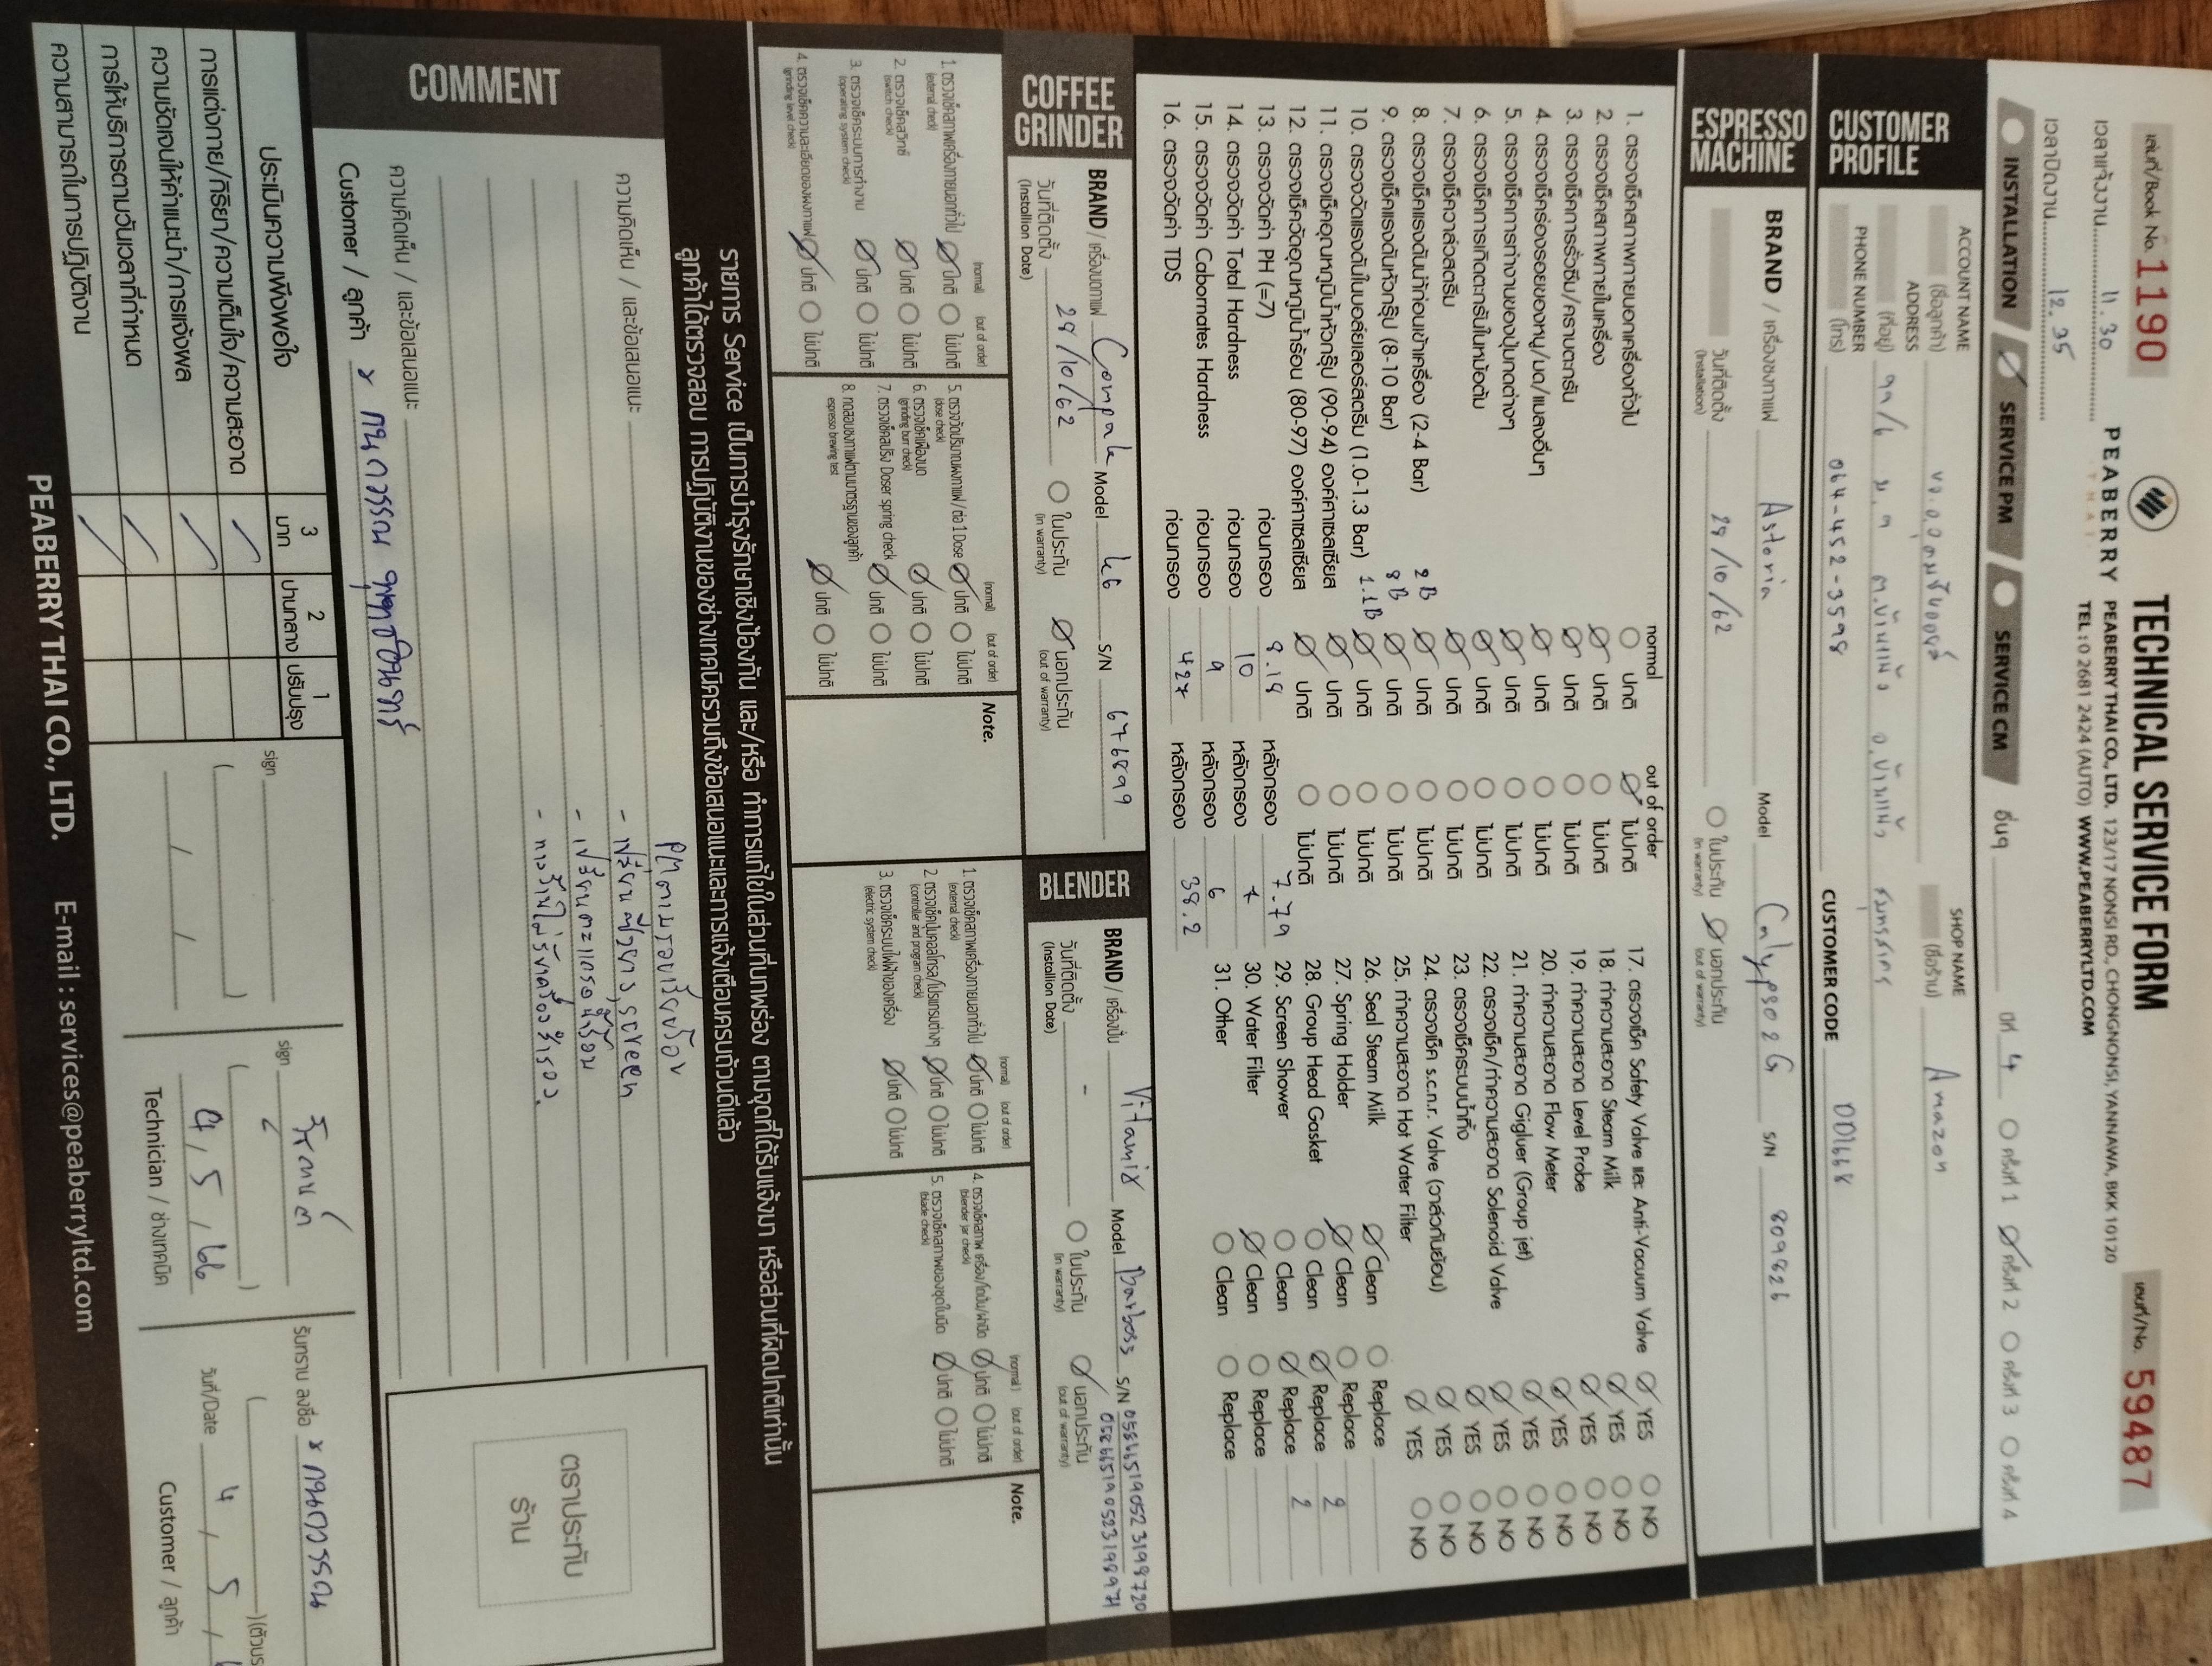 เล่มที่/Book No. 11190
TECHNICAL SERVICE FORM
เลขที่/No. 59487
เวลาแจ้งงาน 11.30
PEABERRY
THAI
PEABERRY THAI CO., LTD. 123/17 NONSI RD., CHONGNONSI, YANNAWA, BKK 10120
TEL : 0 2681 2424 (AUTO) WWW.PEABERRYLTD.COM
เวลาปิดงาน 12.35
INSTALLATION SERVICE PM SERVICE CM อื่นๆ ปีที่ 4 ครั้งที่ 1 ครั้งที่ 2 ครั้งที่ 3 ครั้งที่ 4
CUSTOMER PROFILE
ACCOUNT NAME (ชื่อลูกค้า)
SHOP NAME (ชื่อร้าน) Amazon
ADDRESS (ที่อยู่) 99/6 ม.9 ต.บ้านแพ้ว อ.บ้านแพ้ว สมุทรสาคร
PHONE NUMBER (โทร) 064-452-3598
CUSTOMER CODE 001668
ESPRESSO MACHINE
BRAND / เครื่องชงกาแฟ Astoria Model Calypso 2G S/N 809826
วันที่ติดตั้ง (Installation) 29/10/62 ในประกัน (in warranty) นอกประกัน (out of warranty)
normal out of order
1. ตรวจเช็คสภาพภายนอกเครื่องทั่วไป ปกติ ไม่ปกติ
2. ตรวจเช็คสภาพภายในเครื่อง ปกติ ไม่ปกติ
3. ตรวจเช็คการรั่วซึม/คราบตะกรัน ปกติ ไม่ปกติ
4. ตรวจเช็คร่องรอยของหนู/มด/แมลงอื่นๆ ปกติ ไม่ปกติ
5. ตรวจเช็คการทำงานของปุ่มกดต่างๆ ปกติ ไม่ปกติ
6. ตรวจเช็คการเกิดตะกรันในหม้อต้ม ปกติ ไม่ปกติ
7. ตรวจเช็ควาล์วสตรีม ปกติ ไม่ปกติ
8. ตรวจเช็คแรงดันน้ำก่อนเข้าเครื่อง (2-4 Bar) 2B ปกติ ไม่ปกติ
9. ตรวจเช็คแรงดันหัวกรุ๊ป (8-10 Bar) 8B ปกติ ไม่ปกติ
10. ตรวจวัดแรงดันในบอล์ยเลอร์สตรีม (1.0-1.3 Bar) 1.1B ปกติ ไม่ปกติ
11. ตรวจเช็คอุณหภูมิน้ำหัวกรุ๊ป (90-94) องศ์ศาเซลเซียส ปกติ ไม่ปกติ
12. ตรวจเช็ควัดอุณหภูมิน้ำร้อน (80-97) องศ์ศาเซลเซียส ปกติ ไม่ปกติ
13. ตรวจวัดค่า PH (=7) ก่อนกรอง 8.18 หลังกรอง 7.79
14. ตรวจวัดค่า Total Hardness ก่อนกรอง 10 หลังกรอง 7
15. ตรวจวัดค่า Cabornates Hardness ก่อนกรอง 9 หลังกรอง 6
16. ตรวจวัดค่า TDS ก่อนกรอง 427 หลังกรอง 38.2
17. ตรวจเช็ค Safety Valve และ Anti-Vacuum Valve YES NO
18. ทำความสะอาด Steam Milk YES NO
19. ทำความสะอาด Level Probe YES NO
20. ทำความสะอาด Flow Meter YES NO
21. ทำความสะอาด Gigluer (Group jet) YES NO
22. ตรวจเช็ค/ทำความสะอาด Solenoid Valve YES NO
23. ตรวจเช็คระบบน้ำทิ้ง YES NO
24. ตรวจเช็ค s.c.n.r. Valve (วาล์วกันย้อน) YES NO
25. ทำความสะอาด Hot Water Filter YES NO
26. Seal Steam Milk Clean Replace
27. Spring Holder Clean Replace
28. Group Head Gasket Clean Replace 2
29. Screen Shower Clean Replace 2
30. Water Filter Clean Replace
31. Other Clean Replace
COFFEE GRINDER
BRAND / เครื่องบดกาแฟ Compak Model k6 S/N 676899
วันที่ติดตั้ง (Installion Date) 29/10/62 ในประกัน (in warranty) นอกประกัน (out of warranty)
(normal) (out of order)
1. ตรวจเช็คสภาพเครื่องภายนอกทั่วไป (external check) ปกติ ไม่ปกติ
2. ตรวจเช็คสวิทซ์ (switch check) ปกติ ไม่ปกติ
3. ตรวจเช็คระบบการทำงาน (operating system check) ปกติ ไม่ปกติ
4. ตรวจเช็คความละเอียดของผงกาแฟ (grinding level check) ปกติ ไม่ปกติ
5. ตรวจวัดปริมาณผงกาแฟ / ต่อ 1 Dose (dose check) ปกติ ไม่ปกติ
6. ตรวจเช็คเฟืองบด (grinding burr check) ปกติ ไม่ปกติ
7. ตรวจเช็คสปริง Doser spring check ปกติ ไม่ปกติ
8. ทดสอบชงกาแฟตามมาตรฐานของลูกค้า espresso brewing test ปกติ ไม่ปกติ
Note.
BLENDER
BRAND / เครื่องปั่น Vitamix Model Barboss S/N 058665190523198720
058665190523198971
วันที่ติดตั้ง (Installion Date) - ในประกัน (in warranty) นอกประกัน (out of warranty)
1. ตรวจเช็คสภาพเครื่องภายนอกทั่วไป (external check) ปกติ ไม่ปกติ
2. ตรวจเช็คปุ่มคอลโทรล/โปรแกรมต่างๆ (controller and program check) ปกติ ไม่ปกติ
3. ตรวจเช็คระบบไฟฟ้าของเครื่อง (electric system check) ปกติ ไม่ปกติ
4. ตรวจเช็คสภาพ เครื่อง/โถปั่น/ฝาปิด (blender jar check) ปกติ ไม่ปกติ
5. ตรวจเช็คสภาพของชุดใบมีด (blade check) ปกติ ไม่ปกติ
Note.
รายการ Service เป็นการบำรุงรักษาเชิงป้องกัน และ/หรือ ทำการแก้ไขในส่วนที่บกพร่อง ตามจุดที่ได้รับแจ้งมา หรือส่วนที่ผิดปกติเท่านั้น
ลูกค้าได้ตรวจสอบ การปฏิบัติงานของช่างเทคนิครวมถึงข้อเสนอแนะและการแจ้งเตือนครบถ้วนดีแล้ว
COMMENT
ความคิดเห็น / และข้อเสนอแนะ PM ตามรอบเรียบร้อย
- เปลี่ยนซีลยาง, screen
- เปลี่ยนตะแกรงน้ำร้อน
ความคิดเห็น / และข้อเสนอแนะ
Customer / ลูกค้า x กนกวรรณ
ตราประทับ
ร้าน
ประเมินความพึงพอใจ 3 มาก 2 ปานกลาง 1 ปรับปรุง
การแต่งกาย/กิริยา/ความเต็มใจ/ความสะอาด
ความชัดเจนให้คำแนะนำ/การแจ้งผล
การให้บริการตามวันเวลาที่กำหนด
ความสามารถในการปฏิบัติงาน
sign
sign
4 / 5 / 66
Technician / ช่างเทคนิค
รับทราบ ลงชื่อ x กนกวรรณ
วันที่/Date 4 / 5 /
Customer / ลูกค้า
PEABERRY THAI CO., LTD. E-mail : services@peaberryltd.com